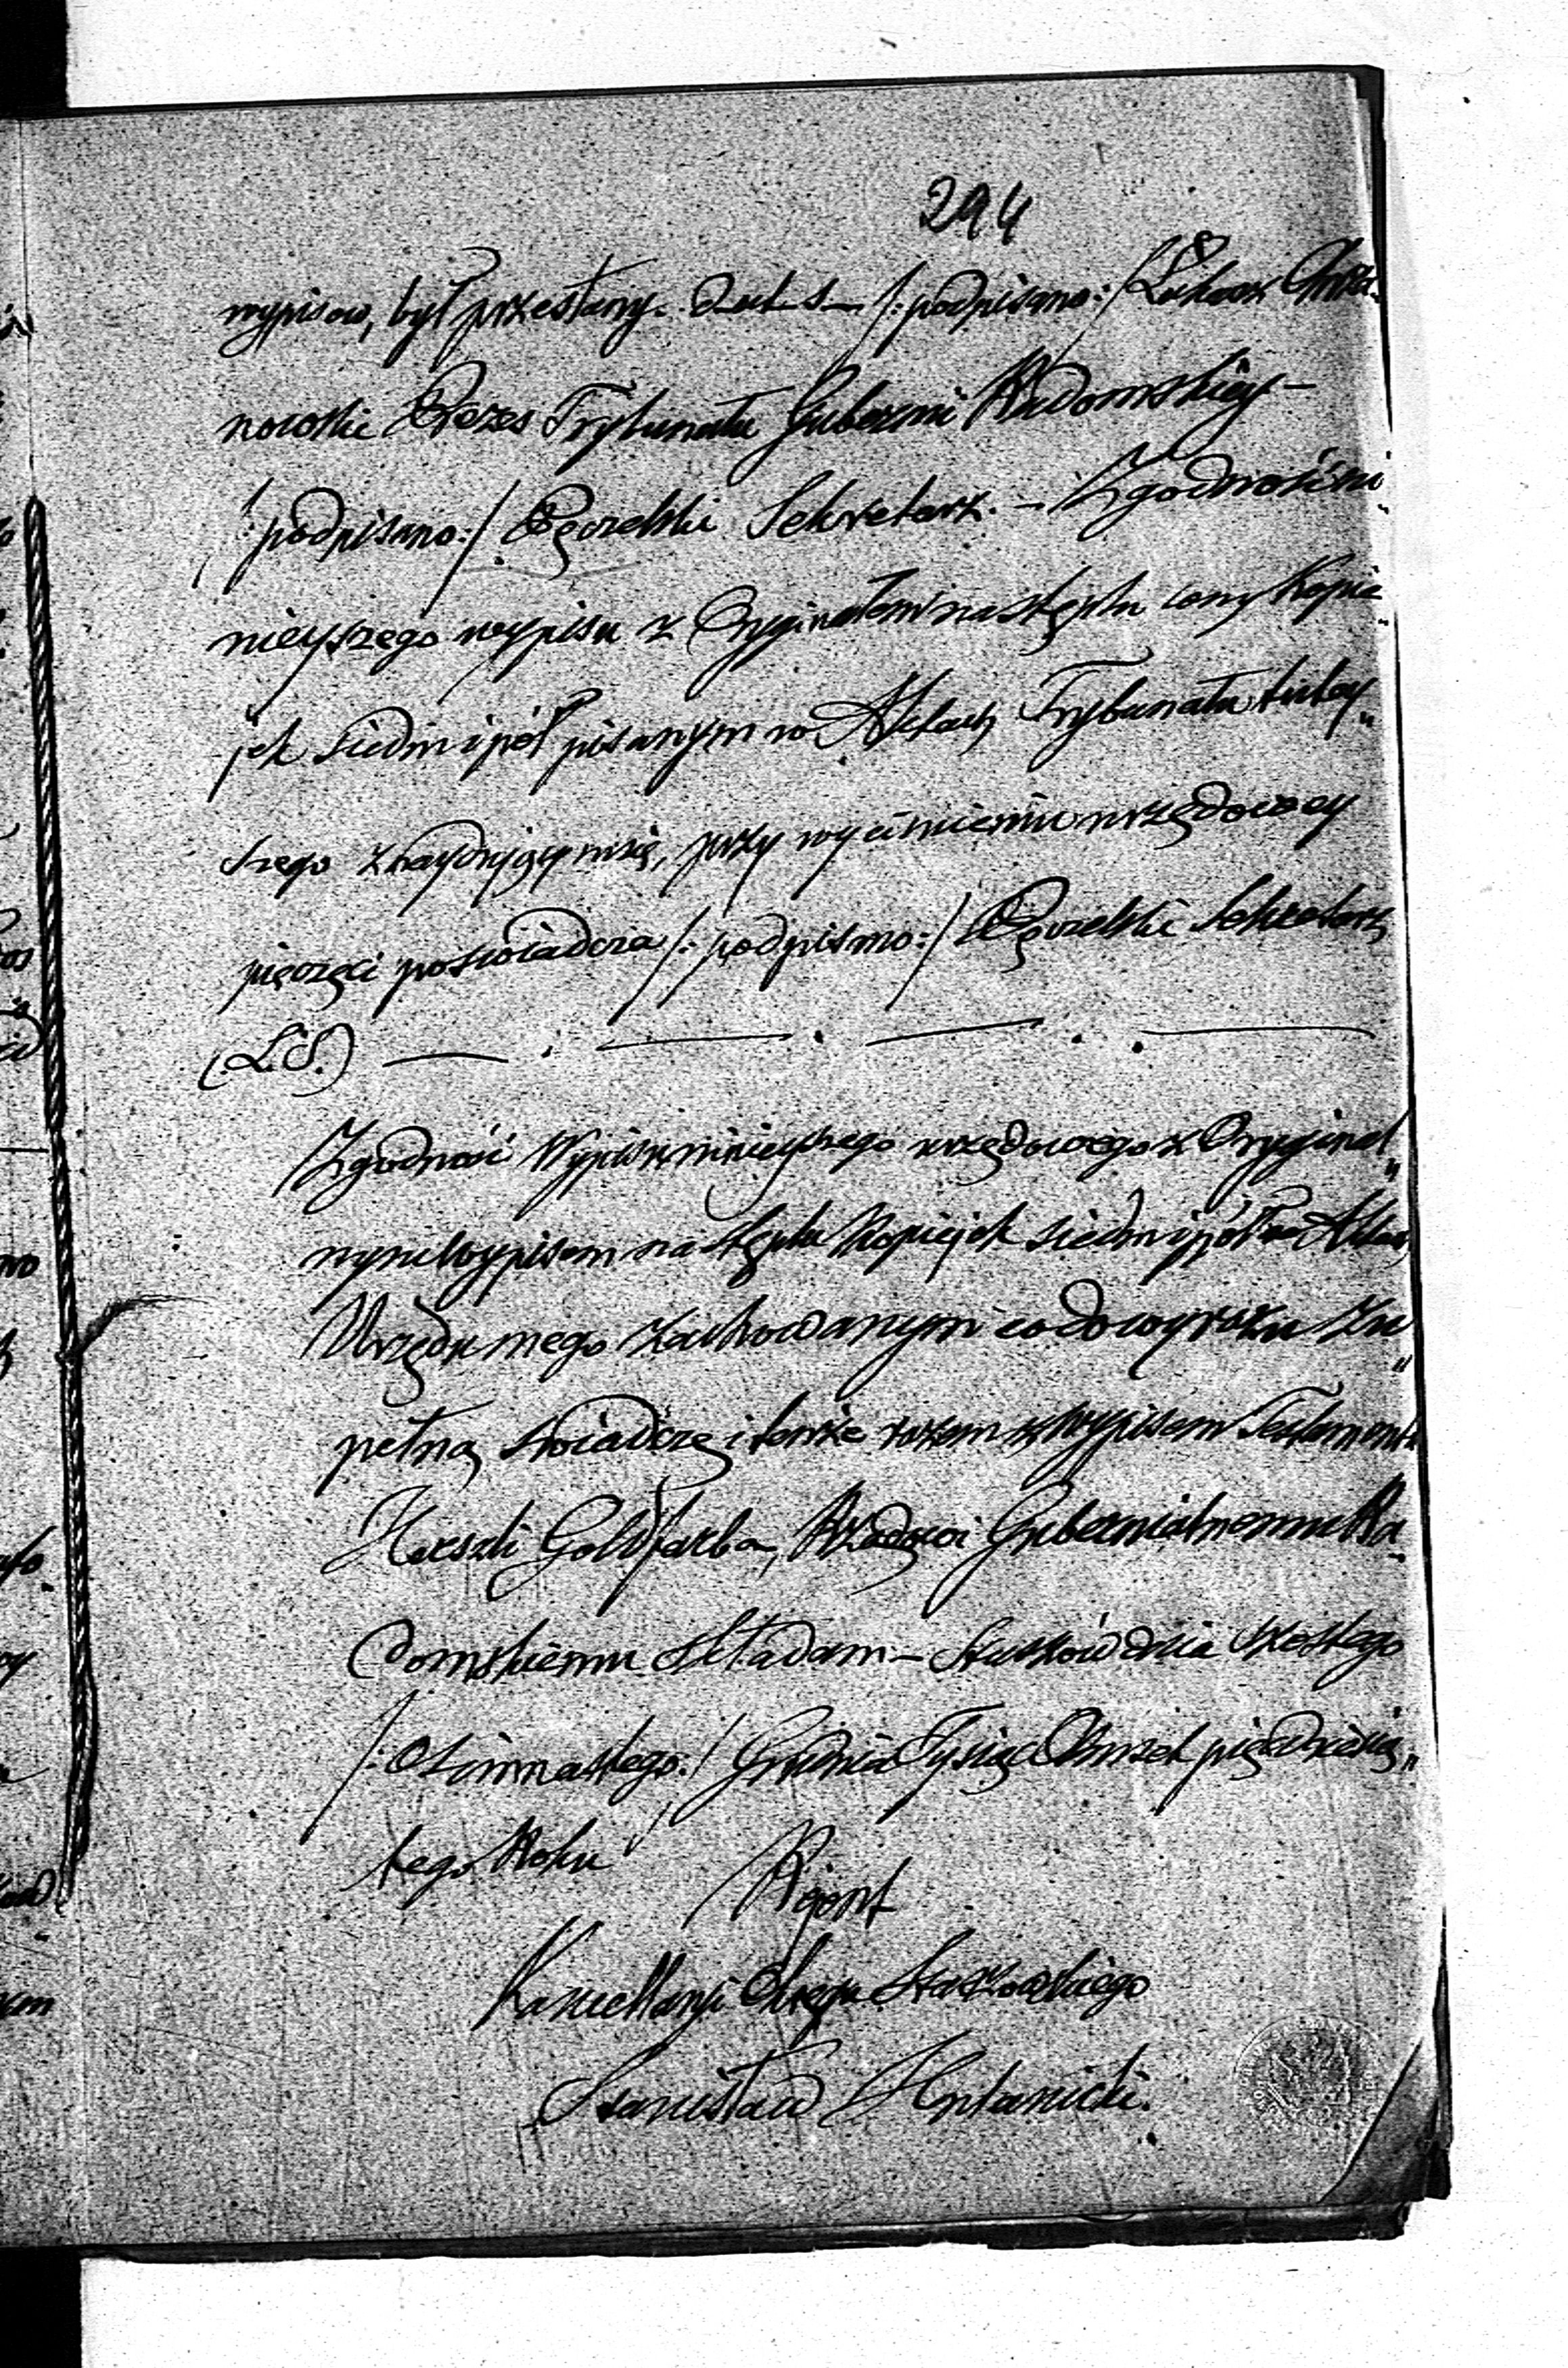 294
wypisow, był przesłany. /:podpisano:/ Łukasz Chrza-
nowski Prezes Trybunału Gubernii Radomskiey —
/:podpisano:/ Sekretarz. — Zgodność ni
nieyszego wypisu z Oryginałem na stęplu ceny kopie
jek siedm i pół pisanym w Aktach Trybunału tutey„
szego znayduiącym się, przy wyciśnieniu urzędowey
pieczęci poświadcza /:podpisano:/ Sekretarz
(L.S.) —
Zgodność Wypisu ninieyszego urzędowego z Oryginal„
nym Wypisem na stęplu Kopiejek siedm i pół w Aktach
Urzędu mego zachowanym co do wyrazu Zu„
pełną świadczę i tenże razem z Wypisem Testamentu
Herszli Goldfarba, Rządowi Gubernialnemu Ra-
domskiemu składam — Staszów dnia szóstego
/:Ośmnastego:/ Grudnia Tysiąc Ośmset pięćdziesią„
tego Roku
Rejent
Kancellaryi Okręgu Staszowskiego
Stanisław